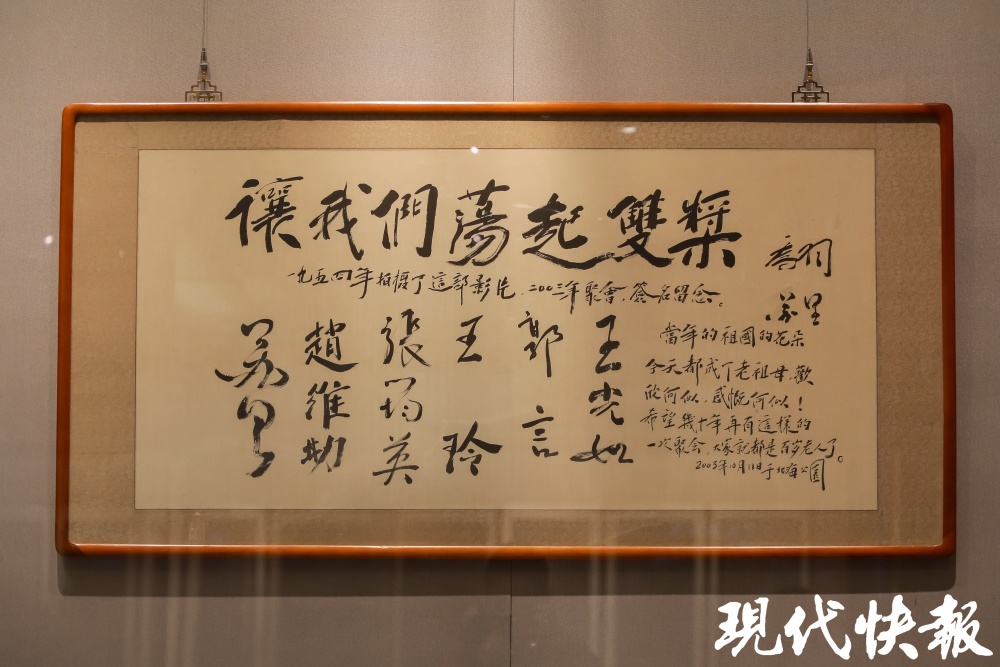 讓我們蕩起雙槳
喬羽
一九五四年拍攝了這部影片，二〇〇三年聚會，簽名留念。
蘇里
趙維勤
張筠英
王玲
郭言
王光如
蘇里
當年的祖國的花朵
今天都成了老祖母，歡
欣何似，感慨何似！
希望幾十年再有這樣的
一次聚会，大家就都是百岁老人了。
2003年10月11日于北海公園
現代快報